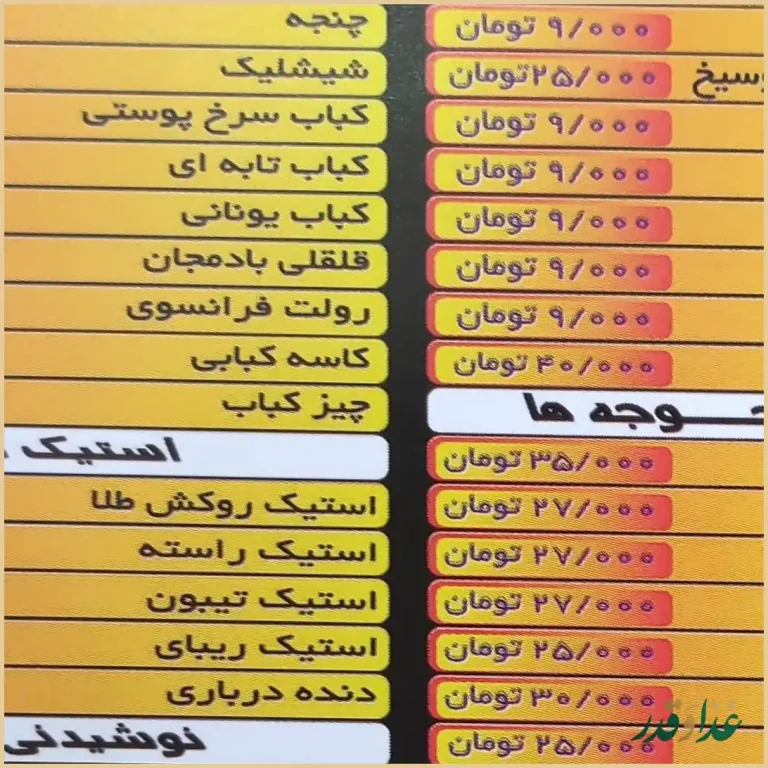 ۹/۰۰۰ تومان
وسیخ ۲۵/۰۰۰تومان
۹/۰۰۰ تومان
۹/۰۰۰ تومان
۹/۰۰۰ تومان
۹/۰۰۰ تومان
۹/۰۰۰ تومان
۴۰/۰۰۰ تومان
جوجه ها
۳۵/۰۰۰ تومان
۲۷/۰۰۰ تومان
۲۷/۰۰۰ تومان
۲۷/۰۰۰ تومان
۲۵/۰۰۰ تومان
۳۰/۰۰۰ تومان
۲۵/۰۰۰ تومان
چنجه
شیشلیک
کباب سرخ پوستی
کباب تابه ای
کباب یونانی
قلقلی بادمجان
رولت فرانسوی
کاسه کبابی
چیز کباب
استیک
استیک روکش طلا
استیک راسته
استیک تیبون
استیک ریبای
دنده درباری
نوشیدنی
غذا و قدر